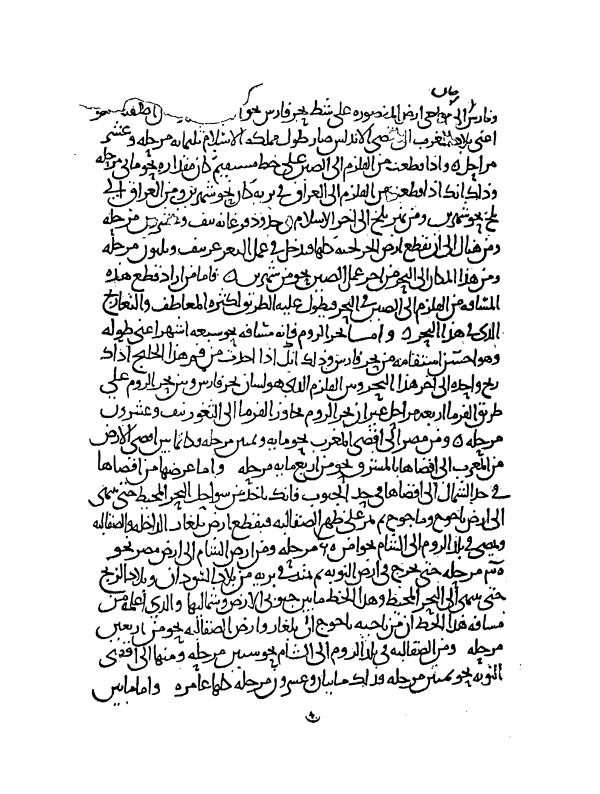 وفارس الى نواحي ارض المنصوره على شط بحر فارس نحو
اعني بلاد المغرب الى اقصى الاندلس صار طول مملكه الاسلام ثلثمايه مرحله وعشر
مراحل ه واذا قطعت من القلزم الى الصين على خط مستقيم كان مقداره نحو مايتي مرحله
وذلك انك اذا قطعت من القلزم الى العراق في بريه كان نحو شهر ومن العراق الى
بلخ نحو شهرين ومن نهر بلخ الى اخر الاسلام في حدود فرغانه نيف وعشرين مرحله
ومن هناك الى ان تقطع ارض الخرلخيه كلها فتدخل في عمل التغزغز نيف وثلثون مرحله
ومن هذا المكان الى البحر من اخر عمل الصين نحو من شهرين ه فاما من اراد قطع هذه
المسافه من القلزم الى الصين في البحر فيطول عليه الطريق لكثره المعاطف والتعاريج
الذي في هذا البحر ه واما بحر الروم فانه مسافه نحو سبعه اشهر اعني طوله
وهو احسن استقامه من بحر فارس وذلك انك اذا اخذت من فم هذا الخليج اداك
ريح واحده الى اخر هذا البحر وبين القلزم الذي هو لسان بحر فارس وبين بحر الروم على
طريق الفرما اربعه مراحل غير ان بحر الروم مجاوز الفرما الى الثغور نيف وعشرون
مرحله ه ومن مصر الى اقصى المغرب نحو مايه وثمنين مرحله وكان ما بين اقصى الارض
من المغرب الى اقصاها بالمشرق نحو من اربعمايه مرحله واما عرضها من اقصاها
في حد الشمال الى اقصاها في حد الجنوب فانك تاخذ من سواحل البحر المحيط حتى تنتهي
الى ارض ياجوج وماجوج ثم تمر على ظهر الصقالبه فتقطع ارض بلغار الداخله والصقالبه
وتمضي في بلد الروم الى الشام نحوا من مرحله ومن ارض الشام الى ارض مصر نحو
مرحله حتى تخرج في ارض النوبه ثم تمتد في بريه من بلاد السودان وبلاد الزنج
حتى تنتهي الى البحر المحيط وهذا الخط ما بين جنوبي الارض وشماليها والذي اعلمه من
مسافه هذا الخط ان من ناحيه ياجوج الى بلغار وارض الصقالبه نحو من اربعين
مرحله ومن الصقالبه في بلد الروم الى الشام نحو ستين مرحله ومنها الى اقصى
النوبه نحو ثمنين مرحله فذلك مايتان وعشرون مرحله كلها عامره واما ما بين